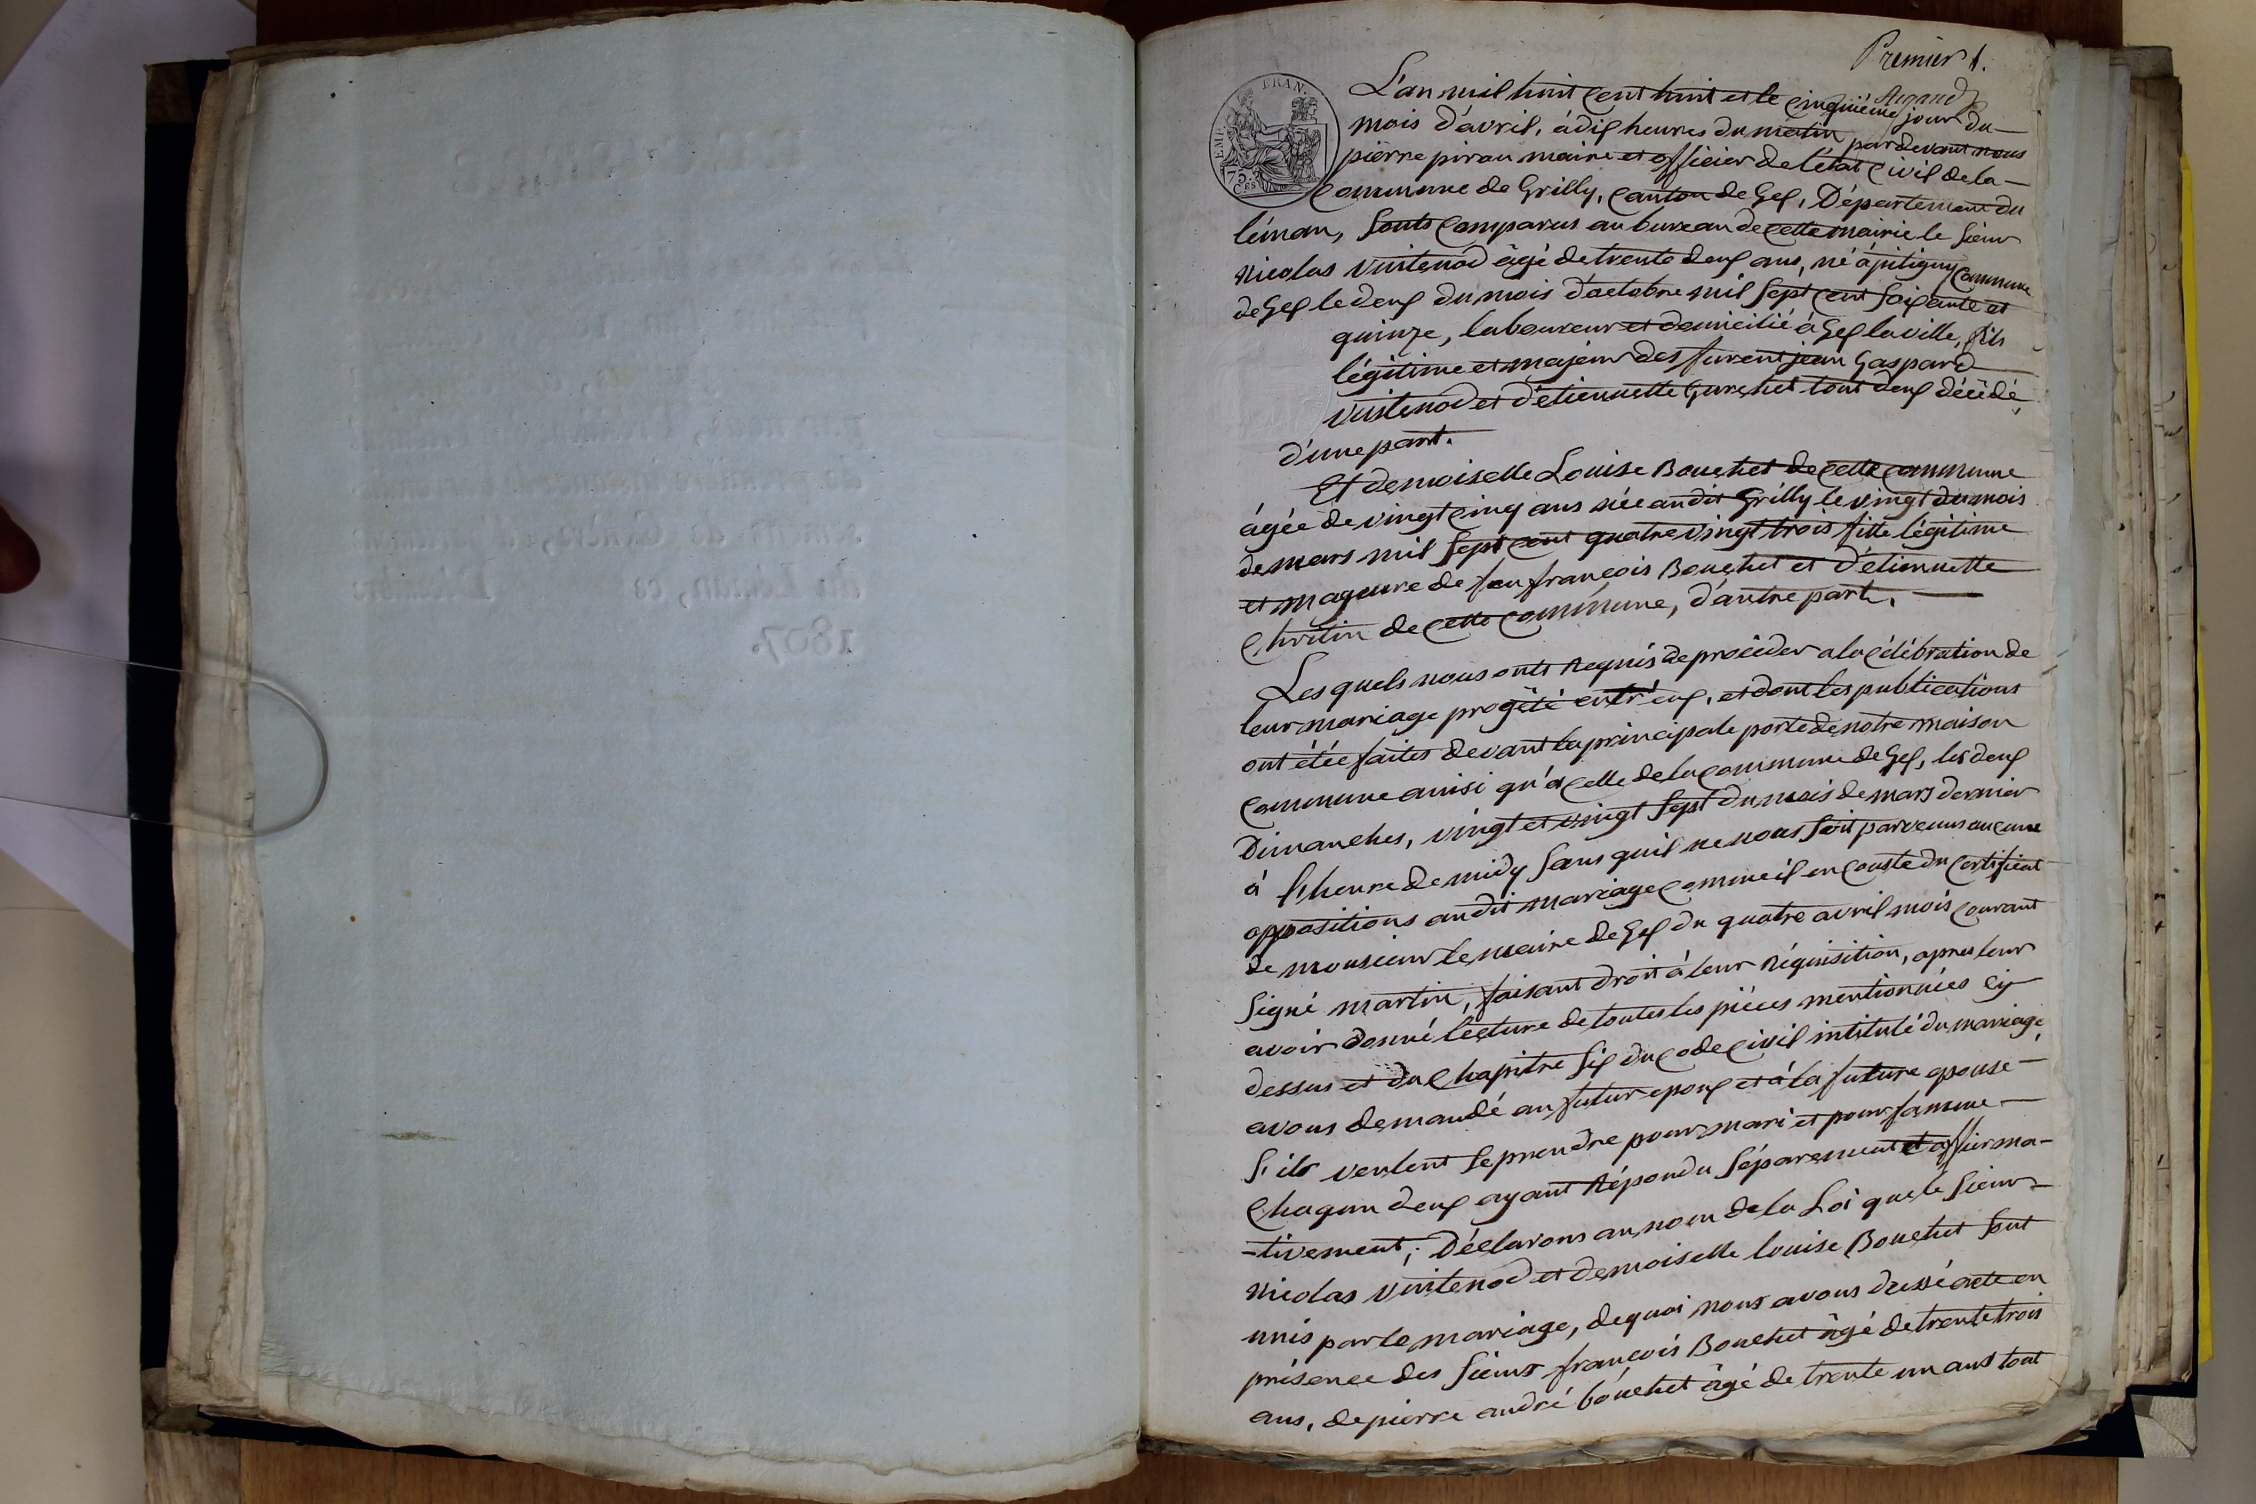 Premier 1.
Argand
EMP. FRAN.
75. CES
L'an mil huit cent huit et le cinquième jour du
mois d'avril, à dix heures du matin pardevant nous
pierre pirau maire et officier de l'état civil de la
Commune de Grilly, canton de Gex, Département du
léman, sonts comparus au bureau de cette mairie le sieur
Nicolas Vuitenod âgé de trente deux ans, né à pitigny commune
de Gex le deux du mois d'octobre mil sept cent soixante et
quinze, laboureur et domicilié à Gex la ville, fils
légitime et majeur des furent jean Gaspard
Vuitenod et d'étiennette Gurchet tout deux décédé,
d'une part.
Et demoiselle Louise Bouchet de cette commune
âgée de vingt cinq ans née audit Grilly le vingt du mois
de mars mil sept cent quatre vingt trois fille légitime
et mageure de feu françois Bouchet et d'étiennette
Chritin de cette commune, d'autre part.
Les quels nous onts requis de procéder a la célébration de
leur mariage progété entr'eux, et dont les publications
ont étée faites devant la principale porte de notre maison
commune ainsi qu'a celle de la commune de Gex, les deux
Dimanches, vingt et vingt sept du mois de mars dernier
à l'heure de midy sans quil ne nous soit parvenus aucune
oppositions audit mariage comme il en conste du certificat
de monsieur le maire de Gex du quatre avril mois courant
signé martin, faisant droit à leur réquisition, apres leur
avoir donné lecture de toutes les pièces mentionnées cy
dessus et du Chapitre six du code civil intitulé du mariage,
avons demandé au futur epoux et à la future epouse
s'ils veulent se prendre pour mari et pour famme
Chaqun deux ayant répondu séparement et affirma-
-tivement; Déclarons au nom de la Loi que le sieur
Nicolas Vuitenod et demoiselle louise Bouchet sont
unis par le mariage, de quoi nous avons dressé acte en
présence des sieurs françois Bouchet âgé de trente trois
ans, de pierre andré bouchet âgé de trente un ans tout
1807.